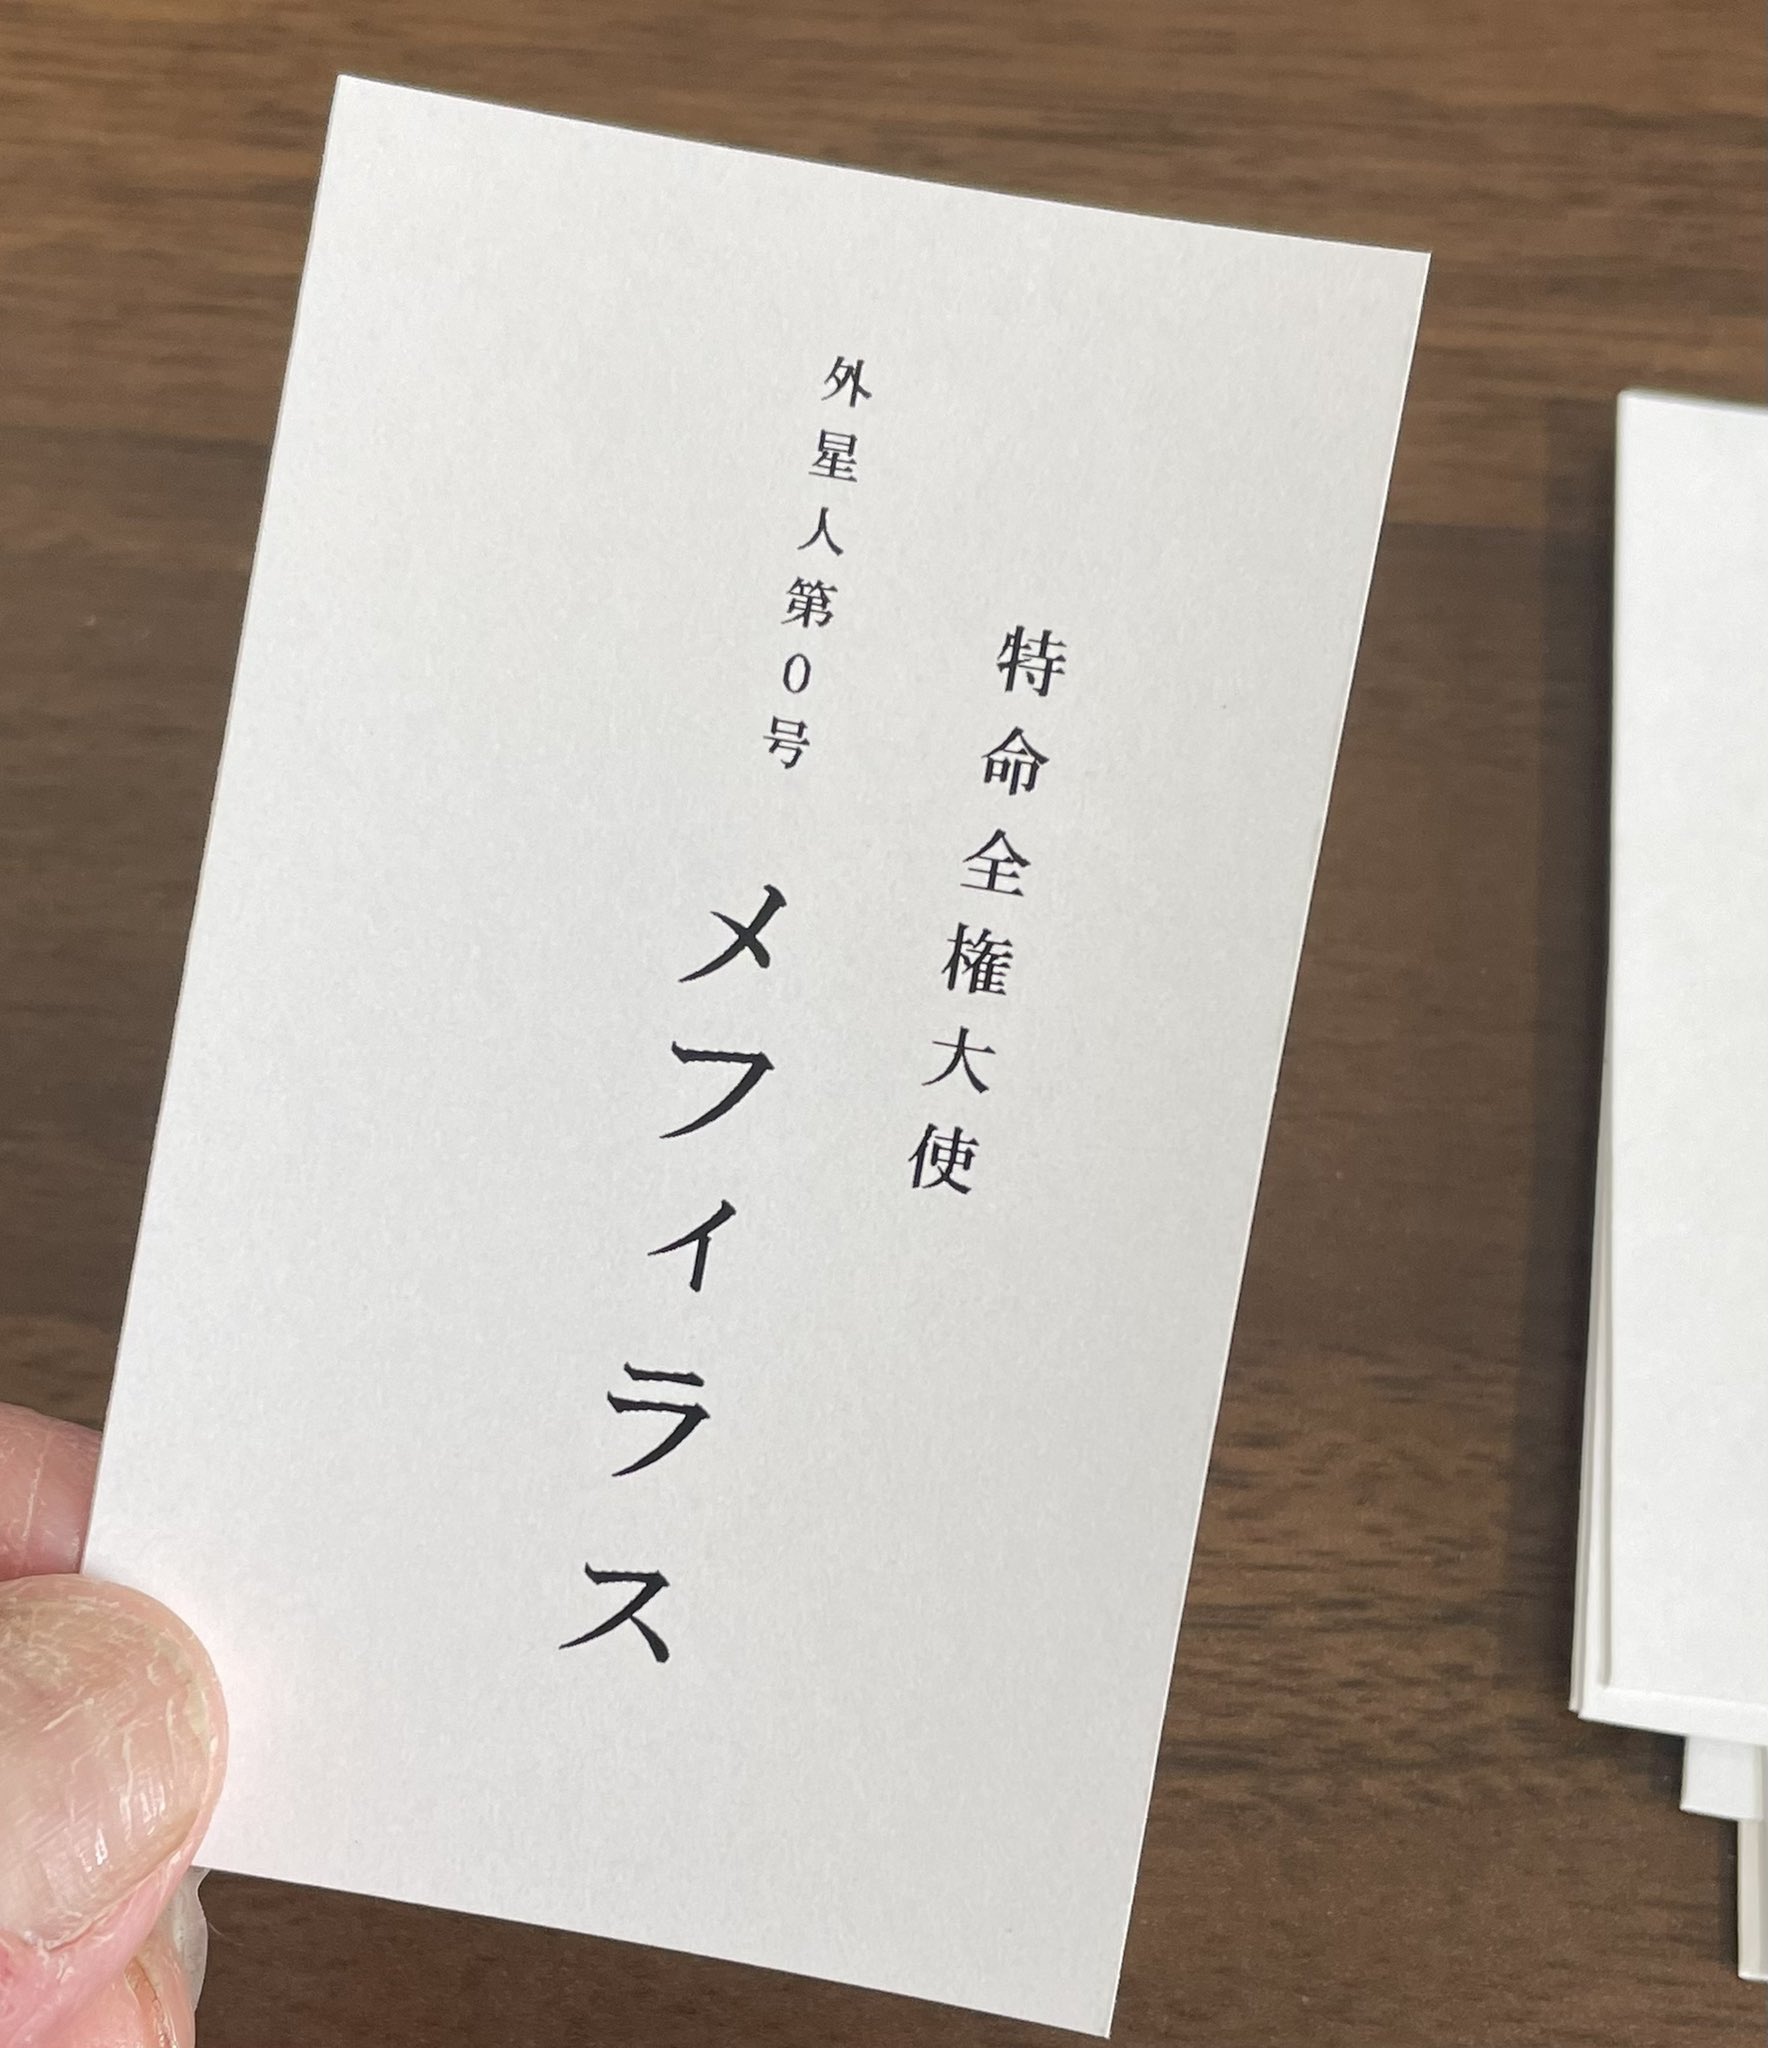 特命全権大使
外星人第0号
メフィラス